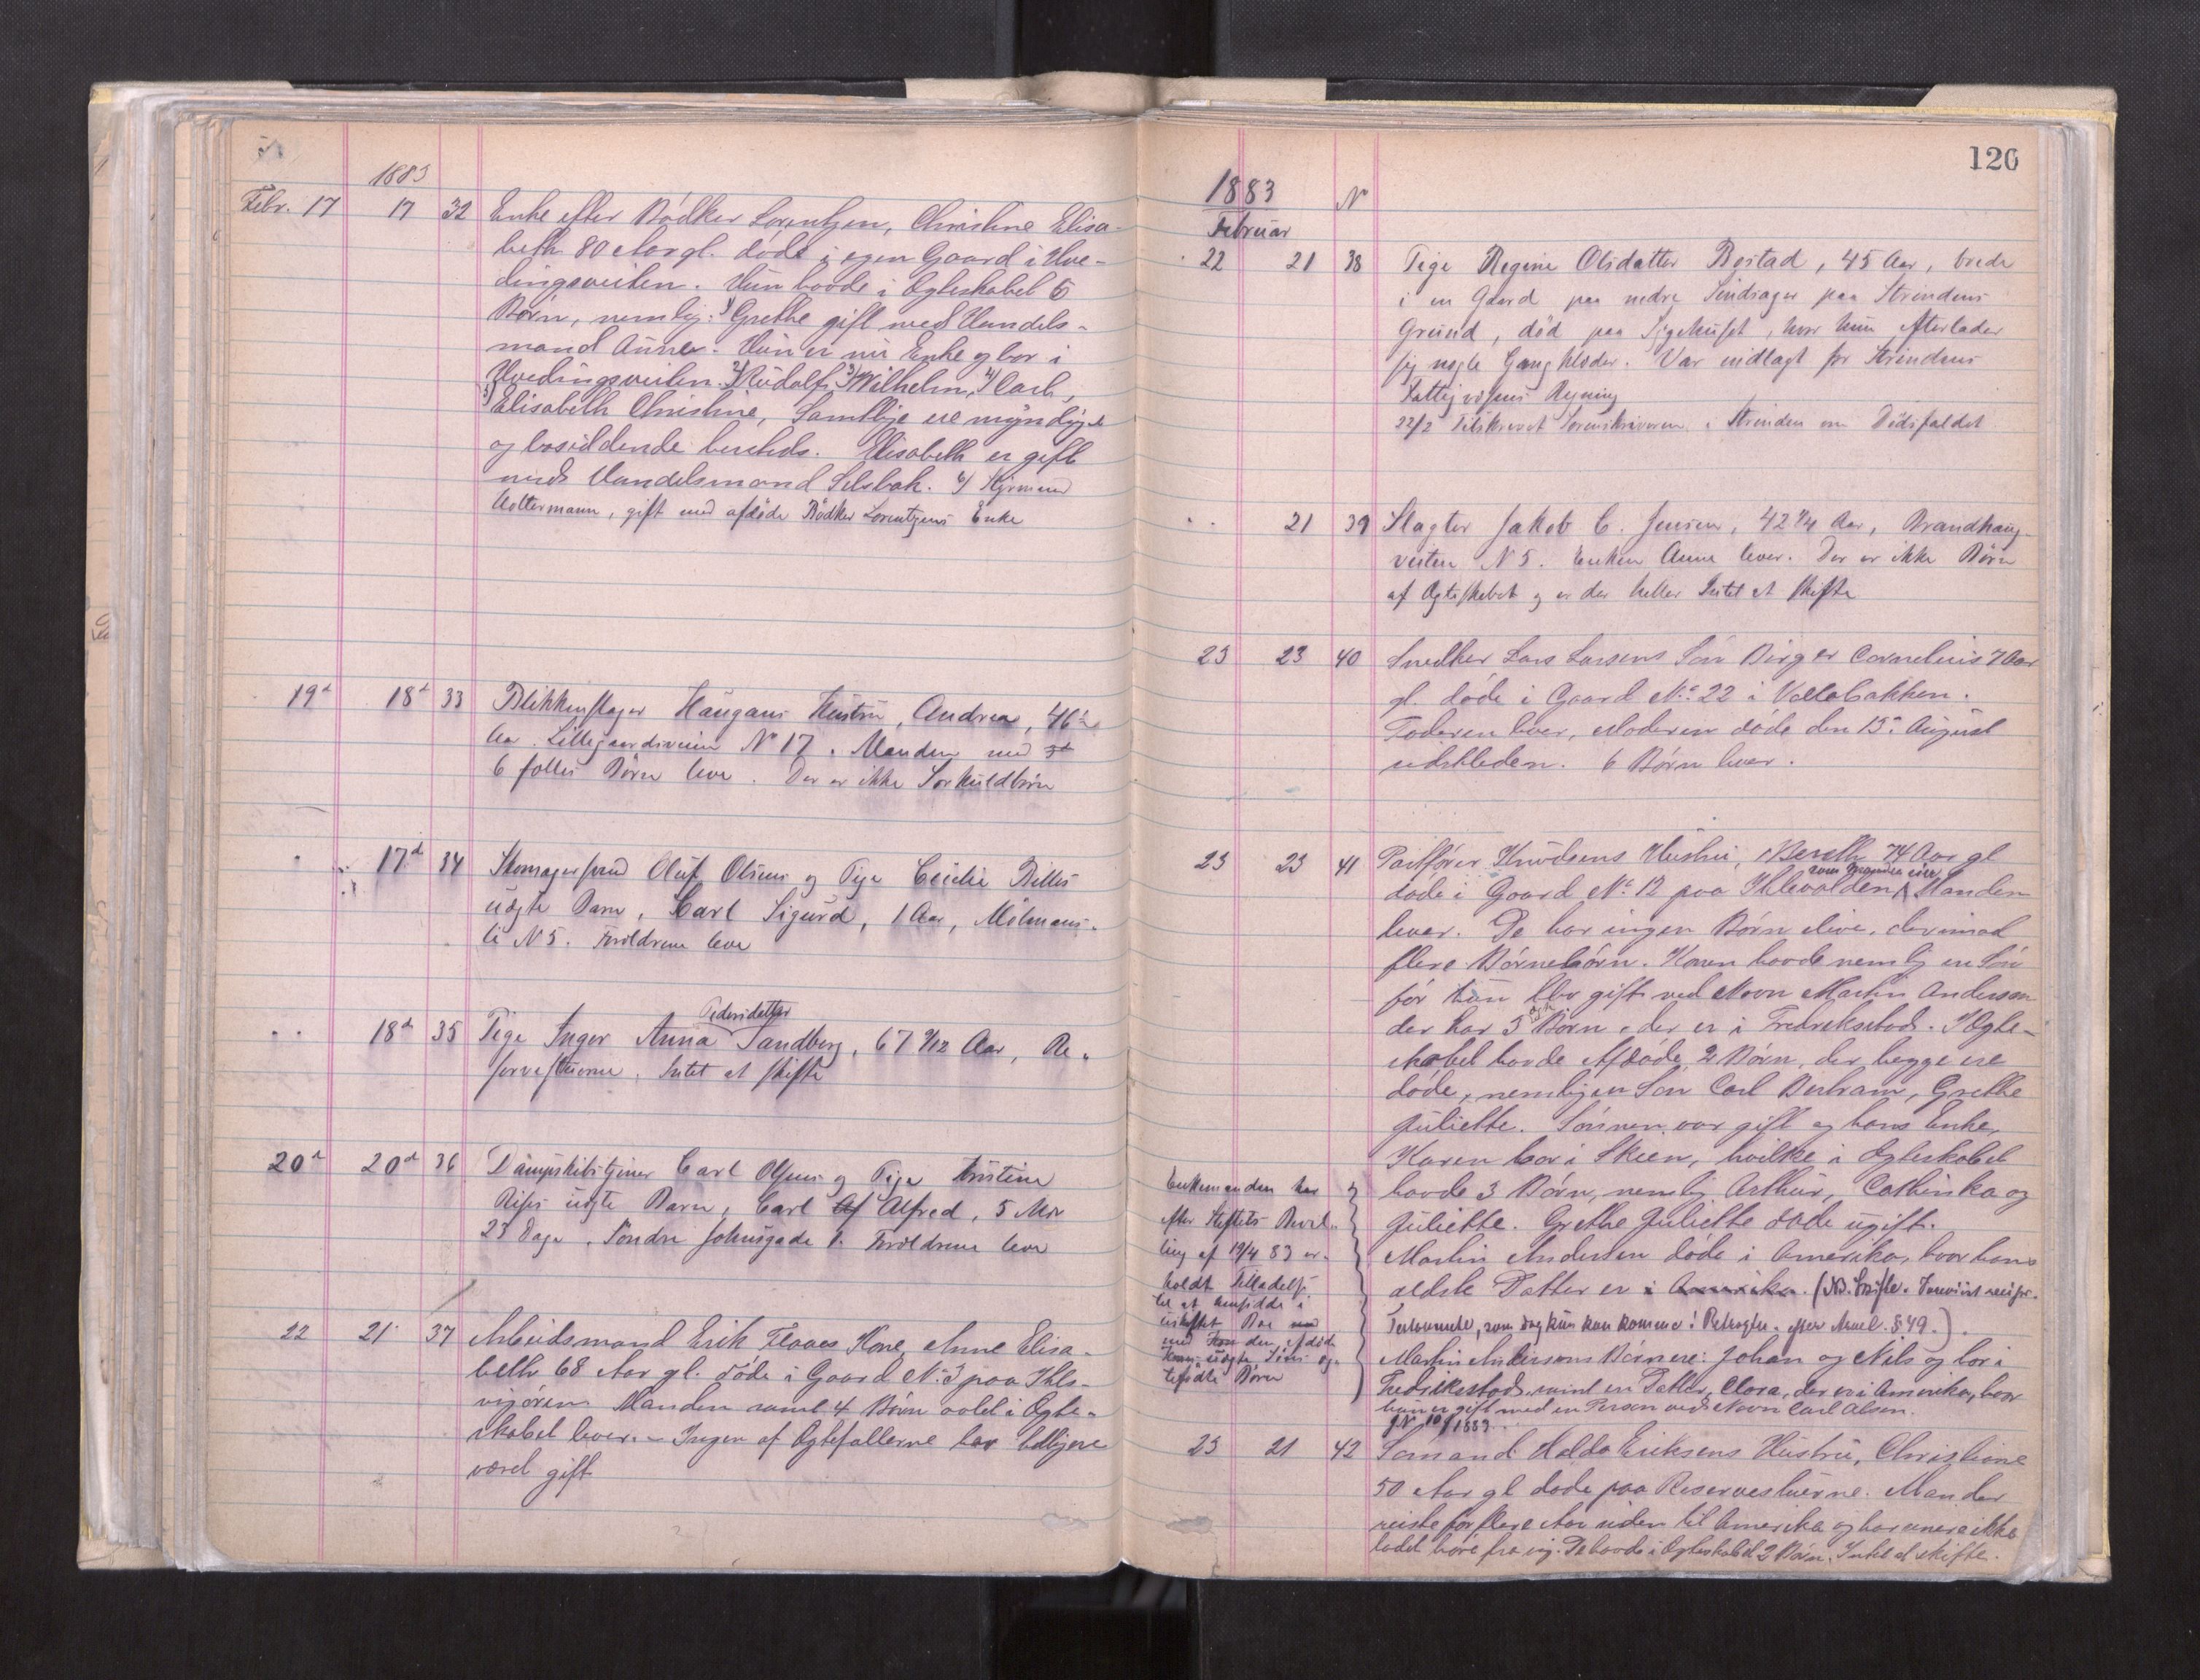 1883
Febr. 17 17 32 Enke efter Bødker Lorentzen, Christine Elisa-
beth 80 Aar gl. døde i egen Gaard i Hve-
dingsveiten. Hun havde i Ægteskabet 5
Børn, nemlig: 1) Grethe gift med Handels-
mand Aune. Hun er nu Enke og bor i
Hvedingsveiten. 2) Rudolf, 3) Wilhelm, 4) Carl,
5) Elisabeth Christine, Samtlige ere myndige
og bosiddende hersteds. Elisabeth er gift
med Handelsmand Selsbak. 6)
gift med afdøde Bødker Lorentzens Enke
19d 18d 33 Blikkenslager Haugans Hustru, Andrea, 46
Aar. Lillegaardsveien No 17. Manden med
6 fælles Børn lever. Der er ikke Særkuldbørn
17d 34 Skomagersvend Oluf Olsens og Pige Cecilie Billes
uægte Barn, Carl Sigurd, 1 Aar, Møllmans-
N 5. Forældrene lever
Pedersdatter
18d 35 Pige Inger Anna Sandberg, 67 Aar, Re-
servestuerne. Intet at skifte
20d 20d 36 Dampskibstjener Carl Olsens og Pige Kristine
uægte Barn, Carl Alfred, 5 Mdr
23 Dage. Søndre Johnsgade 1. Forældrene lever
22 21 37 Arbeidsmand Erik Flaaes Kone, Anne Elisa-
beth 68 Aar gl. døde i Gaard No 3 paa Ihls-
vigøren. Manden samt 4 Børn avlet i Ægte-
skabet lever. - Ingen af Ægtefællerne har tidligere
været gift
120
1883 N
Februar
22 21 38 Pige Regine Olsdatter Bostad, 45 Aar, boede
i en Gaard paa nedre paa Strindens
Grund, død paa Sygehuset, hvor hun efterlader
sig nogle Gangklæder. Var indlagt for Strindens
Fattigvæsens Regning
22/2 Tilskrevet Sorenskriveren i Strinden om Dødsfaldet
21 39 Slagter Jakob C. Jensen, 42 Aar, Brandhaug-
veiten N 5. Enken Anne lever. Der er ikke Børn
af Ægteskabet og er der heller Intet at skifte
23 23 40 Snedker Lars Larsens Søn Birger Cornelius 7 Aar
gl. døde i Gaard No 22 i Vollabakken.
Faderen lever, Moderen døde den 15de August
sidstleden. 6 Børn lever.
23 23 41 Knudsens Hustru, Bereth 74 Aar gl
som Manden eier
døde i Gaard No 12 paa Ihlevolden. Manden
lever. De har ingen Børn ilive, derimod
flere Børnebørn. Konen havde nemlig en Søn
før hun blev gift ved Navn Martin Andersen
der har 3 Børn, der er i Fredriksstad. I Ægte-
skabet havde Afdøde 2 Børn, der begge ere
døde, nemlig en Søn Carl Bertram, Grethe
Juliette. Sønnen var gift og hans Enke,
Karen bor i Skien, hvilke i Ægteskabet
havde 3 Børn, nemlig Arthur, Cathinka og
Juliette. Grethe Juliette døde ugift.
Martin Andersen døde i Amerika, hvor hans
ældste Datter er i Amerika.
som dog kun kan komme i Betragtn. efter § 49.)
Martin Andersens Børn ere: Johan og Nils og bor i
Fredriksstad, samt en Datter, Clara, der er i Amerika, hvor
hun er gift med en Person ved Navn Carl Olsen.
Enkemanden har
efter Stiftets Bevil-
ling af 19/4 83 er-
holdt Tilladelse
til at hensidde i
uskiftet Bo
med den afdøde
Kones uægte Søns eg-
tefødte Børn
J.N. 10/1883
23 21 42 Sømand Eriksens Hustru, Christine
50 Aar gl døde paa Reservestuerne. Manden
reiste for flere Aar siden til Amerika og har senere ikke
ladet høre fra sig. De havde i Ægteskabet 2 Børn. Intet at skifte.